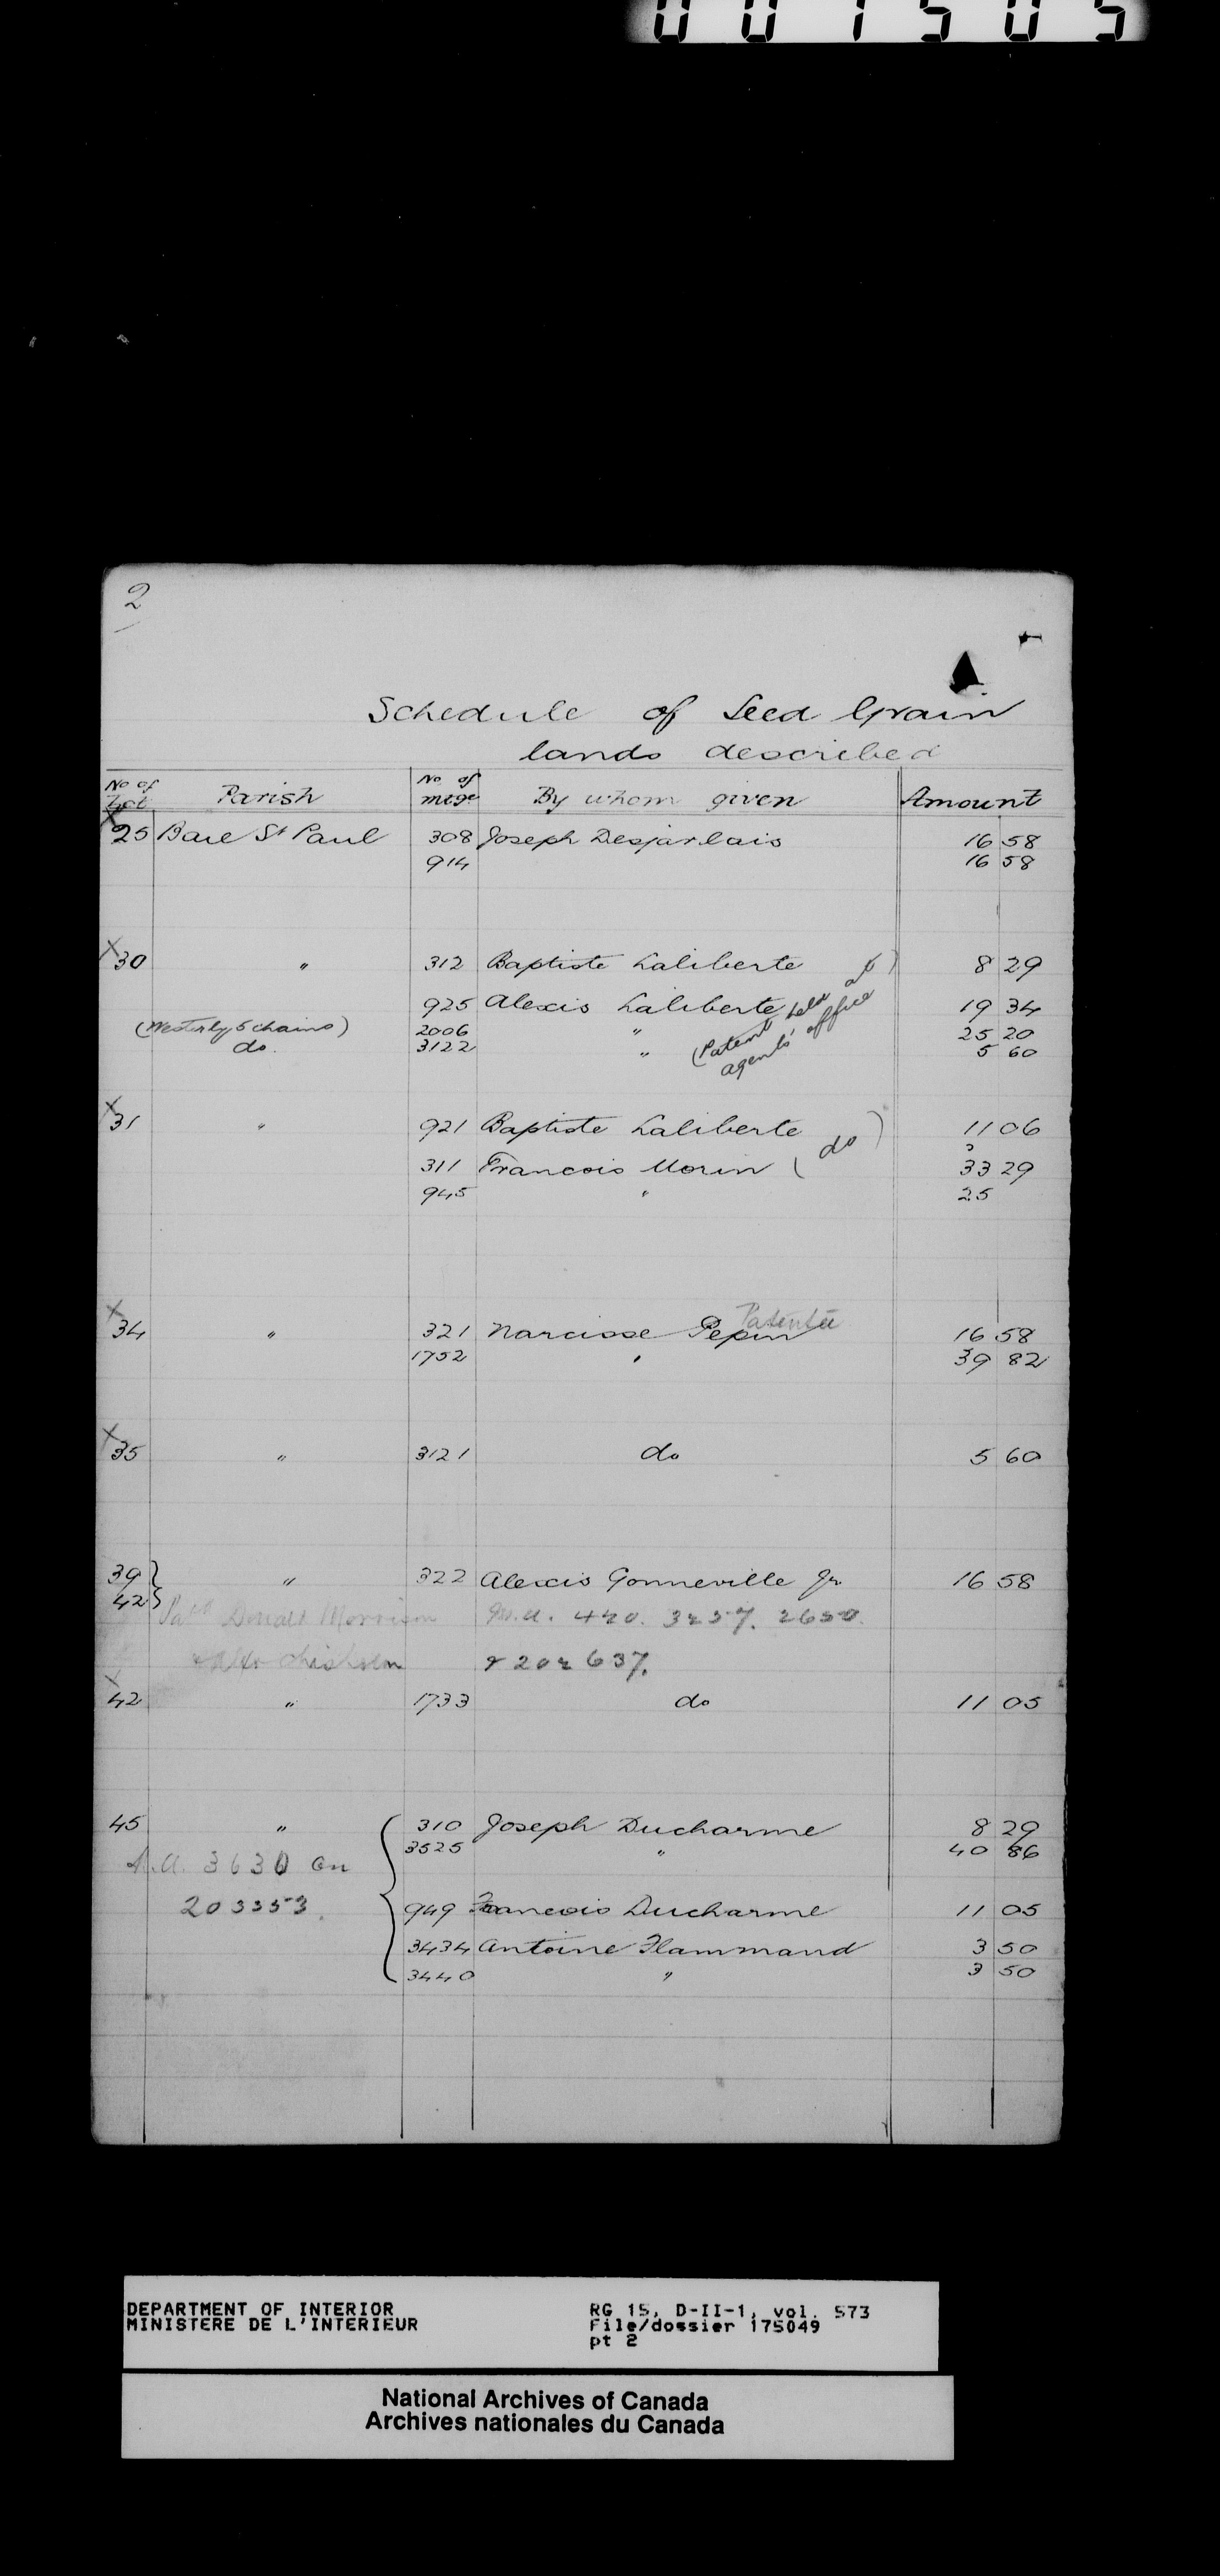 001505
2
Schedule of Seed Grain
lands described
No of Lot Parish No of mtge By whom given Amount
x 25 Baie St Paul 308 Joseph Desjarlais 16 58
914 16 58
x 30 " 312 Baptiste Laliberte 8 29
925 Alexis Laliberte 19 34
(Westerly 5 chains) 2006 " 25 20
do. 3122 " 5 60
(Patent held at
agents' office)
x 31 " 921 Baptiste Laliberte 11 06
311 Francois Morin (do) 33 29
945 " 25
Patentee
x 34 " 321 Narcisse Pepin 16 58
1752 " 39 82
x 35 " 3121 do 5 60
39 } " 322 Alexis Gonneville Jr. 16 58
42 }
Donald Morrison 420. 3257. 2650.
Chisholm & 202637.
x 42 " 1733 do 11 05
45 " 310 Joseph Ducharme 8 29
3525 " 40 86
3630 on
203353.
949 Francois Ducharme 11 05
3434 Antoine Flammand 3 50
3440 " 3 50
DEPARTMENT OF INTERIOR
MINISTERE DE L'INTERIEUR
RG 15, D-II-1, vol. 573
File/dossier 175049
pt 2
National Archives of Canada
Archives nationales du Canada